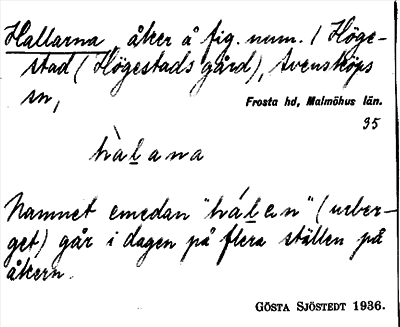 Hallarna åker å fig. num. 1 Höge-
stad (Högestads gård), Svensköps
sn,
Frosta hd, Malmöhus län.
35
hàlana
Namnet emedan "hálen" (urber-
get) går i dagen på flera ställen på
åkern.
GÖSTA SJÖSTEDT 1936.